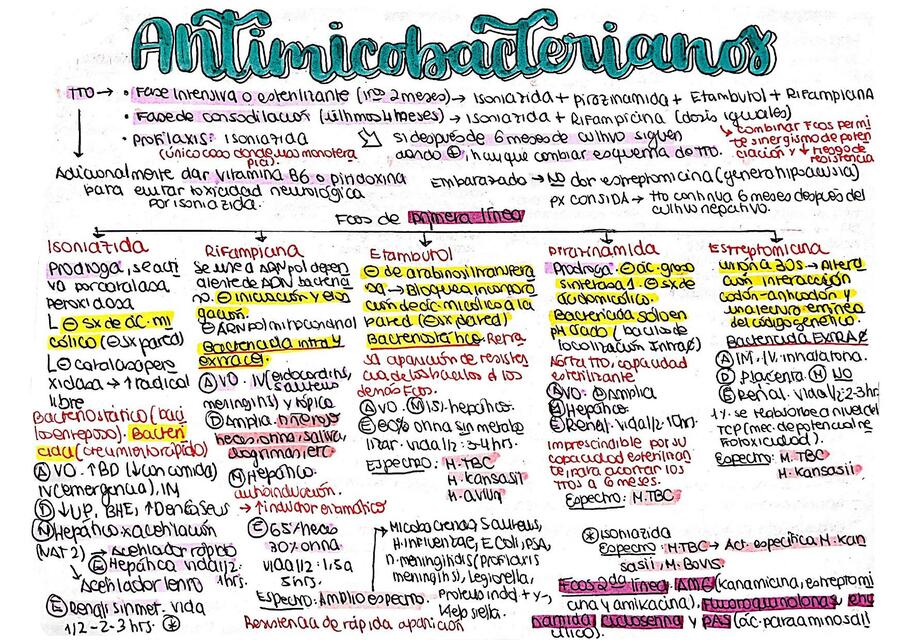 Antimicobacterianos
TTO → • Fase intensiva o esterilizante (1ros 2 meses) → Isoniazida + Pirazinamida + Etambutol + Rifampicina
• Fase de consolidación (últimos 4 meses) → Isoniazida + Rifampicina (dosis iguales)
• Profilaxis: Isoniazida
(único caso donde uso monotera
pia)
Si después de 6 meses de cultivo siguen
dando ⊕, hay que cambiar esquema de TTO.
↳ combinar Fcos permi
te sinergismo de poten
ciación y ↓ riesgo de
resistencia
Adicionalmente dar vitamina B6 o piridoxina
para evitar toxicidad neurológica
por isoniazida.
Embarazada → NO dar estreptomicina (genera hipoacusia)
PX CON SIDA → TTO continua 6 meses después del
cultivo negativo.
Fcos de primera línea
Isoniazida
Prodroga, se acti
va por catalasa
peroxidasa
L ⊖ SX de ác. mi
cólico (⊖ SX pared)
L ⊖ catalasa pero
xidasa → ↑ radical
libre
Bacteriostático (baci
los en reposo). Bacteri
cida (crecimiento rápido)
Ⓐ VO. ↑BD (↓ con comida)
IV (emergencia), IM
Ⓓ ↓UP, BHE,
Ⓜ Hepático x acetilación
(NAT 2) → Acetilador rápido
Ⓔ Hepática vida 1/2:
1hrs.
↘ Acetilador lento
Ⓔ Renal sin met. vida
1/2 - 2-3 hrs. ⊛
Rifampicina
Se une a ARN pol depen
diente de ADN bacteria
no. ⊖ iniciación y elon
gación.
⊖ ARN pol mitocondrial
Bactericida intra y
extracel.
Ⓐ VO. IV (endocarditis,
S. aureus
meningitis) y tópica
Ⓓ Amplia.
heces, orina, saliva,
lágrimas, etc
Ⓜ Hepático.
autoinducción.
→ ↑ inductor enzimático
Ⓔ 65% heces
30% orina
vida 1/2: 1.5 a
5hrs.
Espectro: Amplio espectro.
Resistencia de rápida aparición
Etambutol
⊖ de arabinosiltransfera
sa → Bloquea incorpora
ción de ác. micólico a la
pared (⊖ SX pared)
Bacteriostático. Retra
sa aparición de resisten
cia de los bacilos a los
demás Fcos.
Ⓐ VO. Ⓜ 15% hepático.
Ⓔ 80% orina sin metabo
lizar. vida 1/2: 3-4 hrs.
Espectro: M. TBC
M. Kansasii
M. avium
→ Micobacterias, S. aureus,
H. influenzae, E. Coli, PSA,
N. meningitidis (profilaxis
meningitis), legionella,
Proteus indol + y -,
Klebsiella.
Pirazinamida
Prodroga. ⊖ ác. graso
sintetasa 1. ⊖ SX de
ác. micólico.
Bactericida sólo en
pH ácido (bacilos de
localización intrac)
Acorta TTO, capacidad
esterilizante
Ⓐ VO. Ⓓ Amplia
Ⓜ Hepático.
Ⓔ Renal. Vida 1/2: 10hr.
Imprescindible por su
capacidad esterilizan
te para acortar los
TTOs a 6 meses.
Espectro: M. TBC
Estreptomicina
Unión a 30S → Altera
ción interacción
codón-anticodón y
mala lectura errónea
del código genético.
Bactericida EXTRAC
Ⓐ IM. IV. inhalatoria.
Ⓓ Placenta. Ⓜ NO
Ⓔ Renal. Vida 1/2: 2-3hr.
1% se reabsorbe a nivel del
TCP (mec. de potencial ne
frotoxicidad).
Espectro: M. TBC
M. Kansasii
⊛ Isoniazida
Espectro: M. TBC → Act. específica M. Kan
sasii, M. Bovis.
Fcos 2da línea: AMG (kanamicina, estreptomi
cina y amikacina), Fluoroquinolonas, etio
namida, cicloserina y PAS (ác. paraaminosali
cílico).